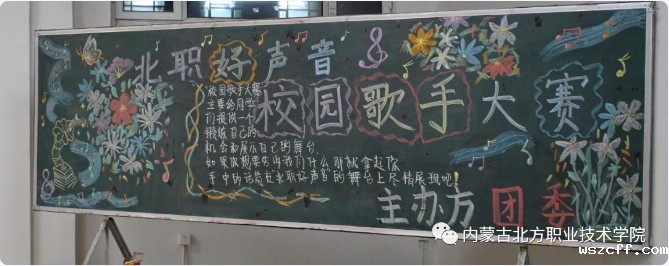 北职好声音
校园歌手大赛
校园歌手大赛
主要给同学
们提供一个
锻炼自己的
机会和展示自己的舞台
如果你想要告诉我们什么那就拿起你
手中的话筒在北职好声音的舞台上尽情展现吧!
主办方 团委
内蒙古北方职业技术学院
www.wszcff.com